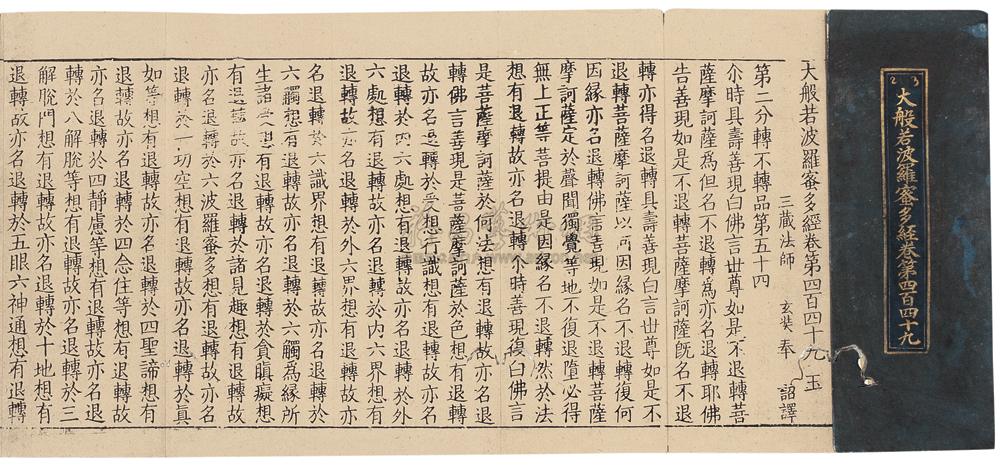 23
大般若波羅蜜多經卷第四百四十九
大般若波羅蜜多經卷第四百四十九 玉
三藏法師 玄奘奉 詔譯
第二分轉不轉品第五十四
尒時具壽善現白佛言世尊如是不退轉菩
薩摩訶薩爲但名不退轉爲亦名退轉耶佛
告善現如是不退轉菩薩摩訶薩旣名不退
轉亦得名退轉具壽善現白言世尊如是不
退轉菩薩摩訶薩以何因緣名不退轉復何
因緣亦名退轉佛言善現如是不退轉菩薩
摩訶薩定於聲聞獨覺等地不復退墮必得
無上正等菩提由是因緣名不退轉然於法
想有退轉故亦名退轉尒時善現復白佛言
是菩薩摩訶薩於何法想有退轉故亦名退
轉佛言善現是菩薩摩訶薩於色想有退轉
故亦名退轉於受想行識想有退轉故亦名
退轉於內六處想有退轉故亦名退轉於外
六處想有退轉故亦名退轉於內六界想有
退轉故亦名退轉於外六界想有退轉故亦
名退轉於六識界想有退轉故亦名退轉於
六觸想有退轉故亦名退轉於六觸爲緣所
生諸受想有退轉故亦名退轉於貪瞋癡想
有退轉故亦名退轉於諸見趣想有退轉故
亦名退轉於六波羅蜜多想有退轉故亦名
退轉於一切空想有退轉故亦名退轉於眞
如等想有退轉故亦名退轉於四聖諦想有
退轉故亦名退轉於四念住等想有退轉故
亦名退轉於四靜慮等想有退轉故亦名退
轉於八解脫等想有退轉故亦名退轉於三
解脫門想有退轉故亦名退轉於十地想有
退轉故亦名退轉於五眼六神通想有退轉